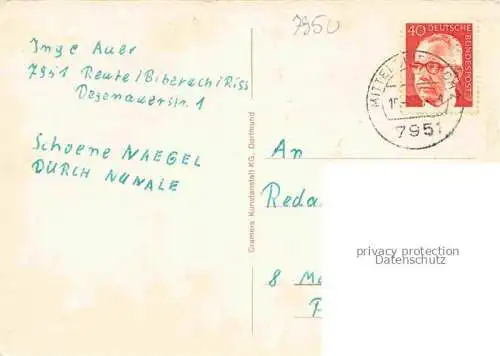 7950
Inge Auer
7951 Reute/Biberach/Riss
Degenauerstr. 1
Schoene NAEGEL
DURCH NUNALE
Cramers Kunstanstalt KG, Dortmund
40 DEUTSCHE BUNDESPOST
7951
An
Reda
8
privacy protection
Datenschutz